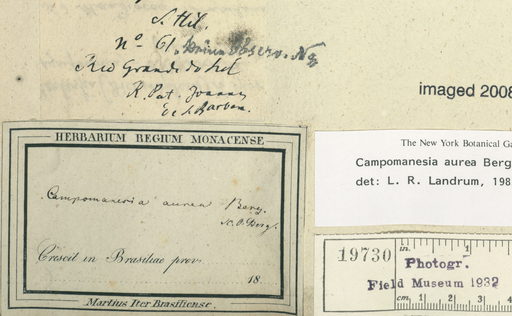 S. Hil.
Nº 61.
Rio Grande do Sul
R. Pat. Joanny
imaged 2008
HERBARIUM REGIUM MONACENSE
Campomanesia aurea Berg.
N. O. Berg.
Crescit in Brasiliae prov.
18
Martius Iter Brasiliense.
The New York Botanical Ga
Campomanesia aurea Berg
det: L. R. Landrum, 198
19730
in. 1
Photogr.
Field Museum 1932
cm 1 2 3 4